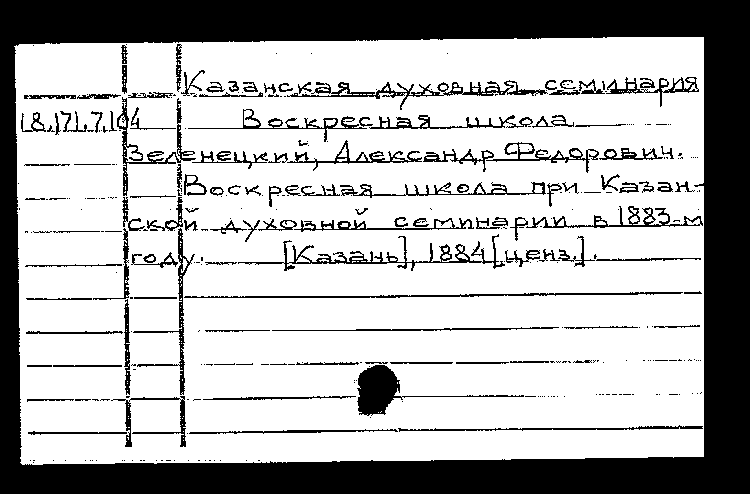 Казанская духовная семинария
18.171.7.104 Воскресная школа
Зеленецкий, Александр Федорович.
Воскресная школа при Казан-
ской духовной семинарии в 1883-м
году. [Казань], 1884 [ценз.].